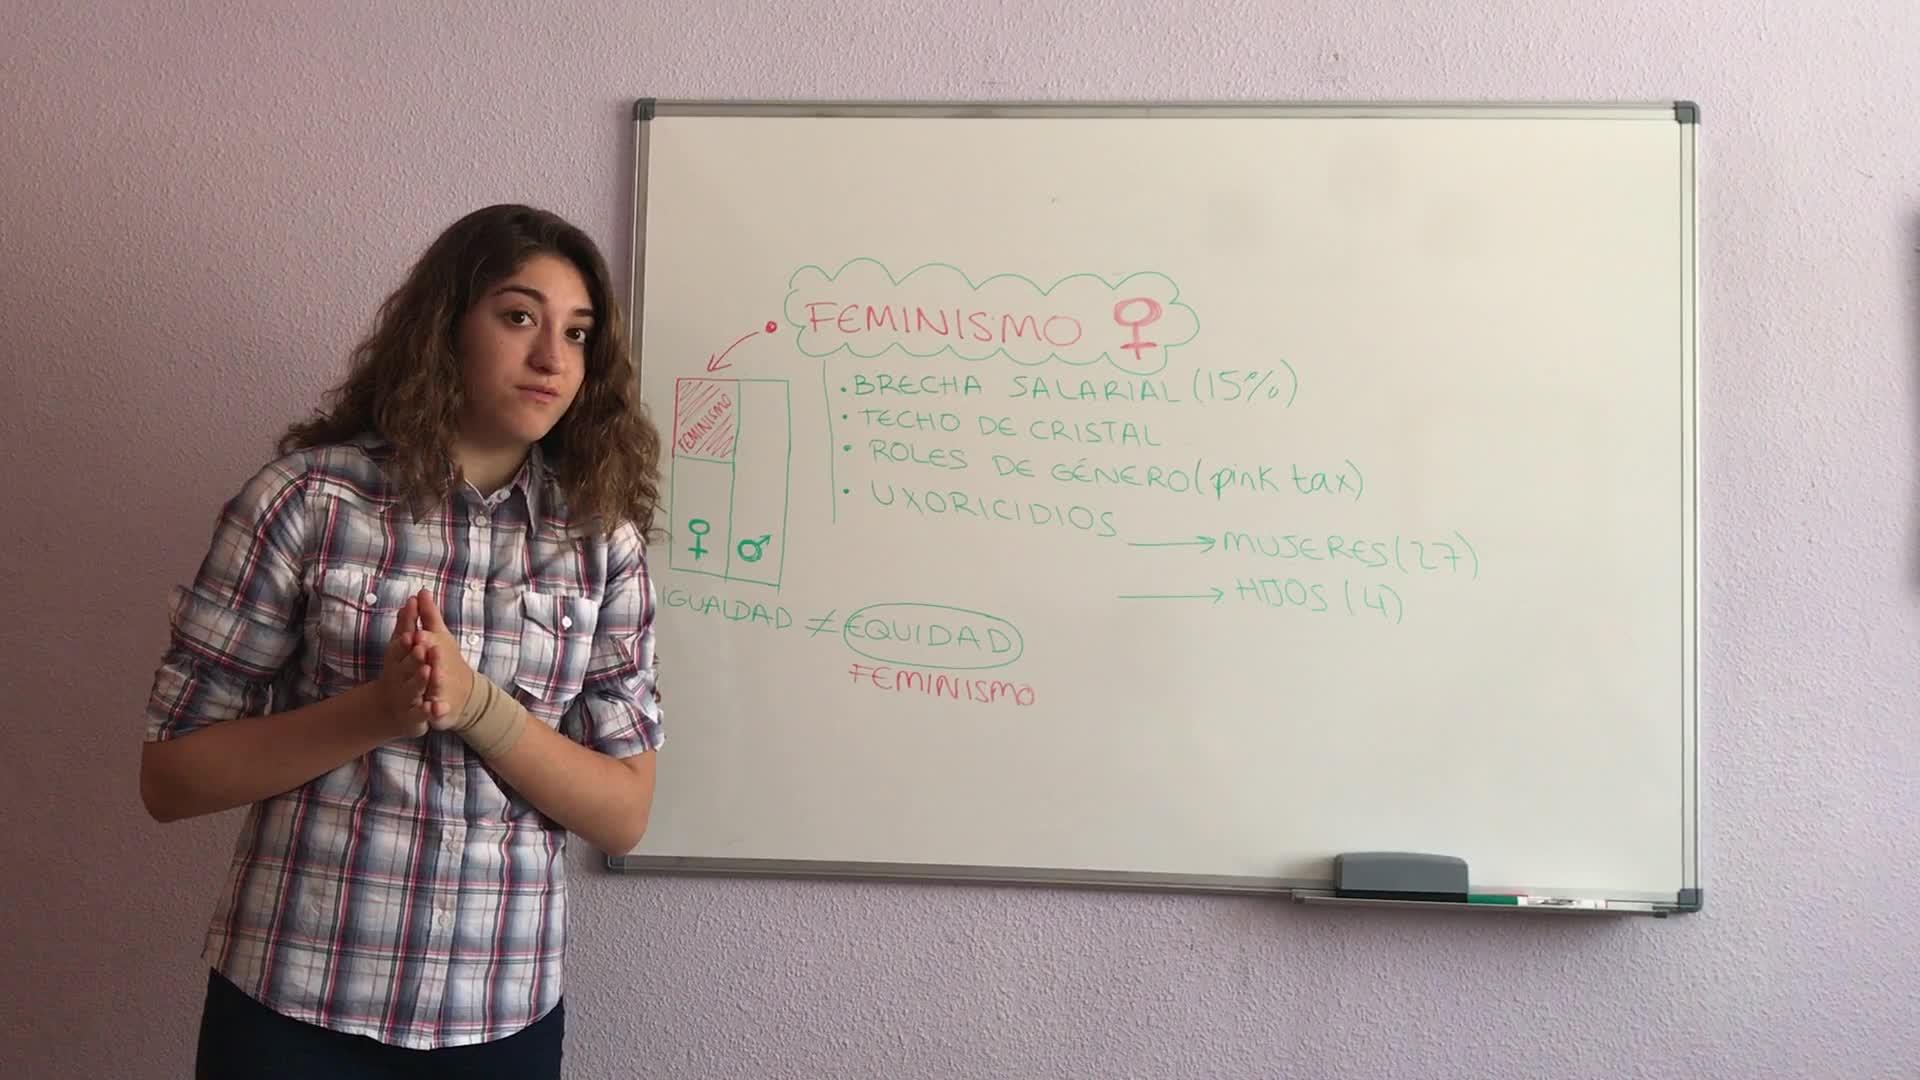 FEMINISMO ♀
FEMINISMO
♀ ♂
• BRECHA SALARIAL (15%)
• TECHO DE CRISTAL
• ROLES DE GÉNERO (pink tax)
• UXORICIDIOS
→ MUJERES (27)
→ HIJOS (4)
IGUALDAD ≠ EQUIDAD
FEMINISMO